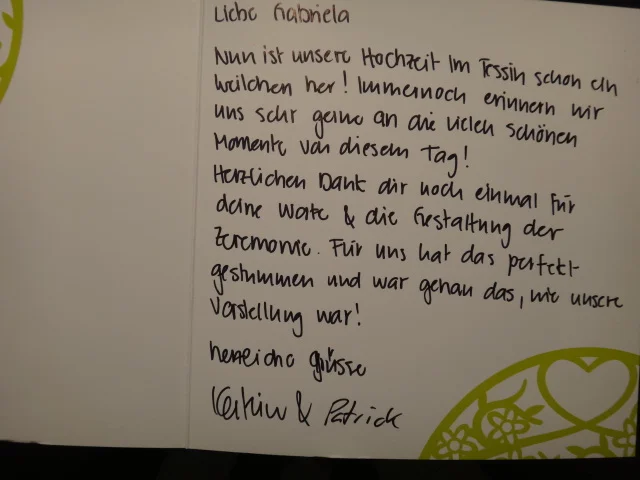 Liebe Gabriela
Nun ist unsere Hochzeit im Tessin schon ein
weilchen her! Immernoch erinnern wir
uns sehr gerne an die vielen schönen
Momente von diesem Tag!
Herzlichen Dank dir noch einmal für
deine Worte & die Gestaltung der
Zeremonie. Für uns hat das perfekt
gestimmen und war genau das, wie unsere
Vorstellung war!
herzliche grüsse
& Patrick